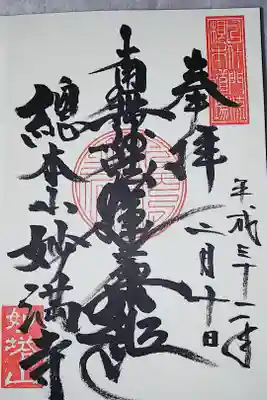 奉拝
平成三十一年
二月十日
南無妙法蓮華経
總本山妙満寺
妙塔山